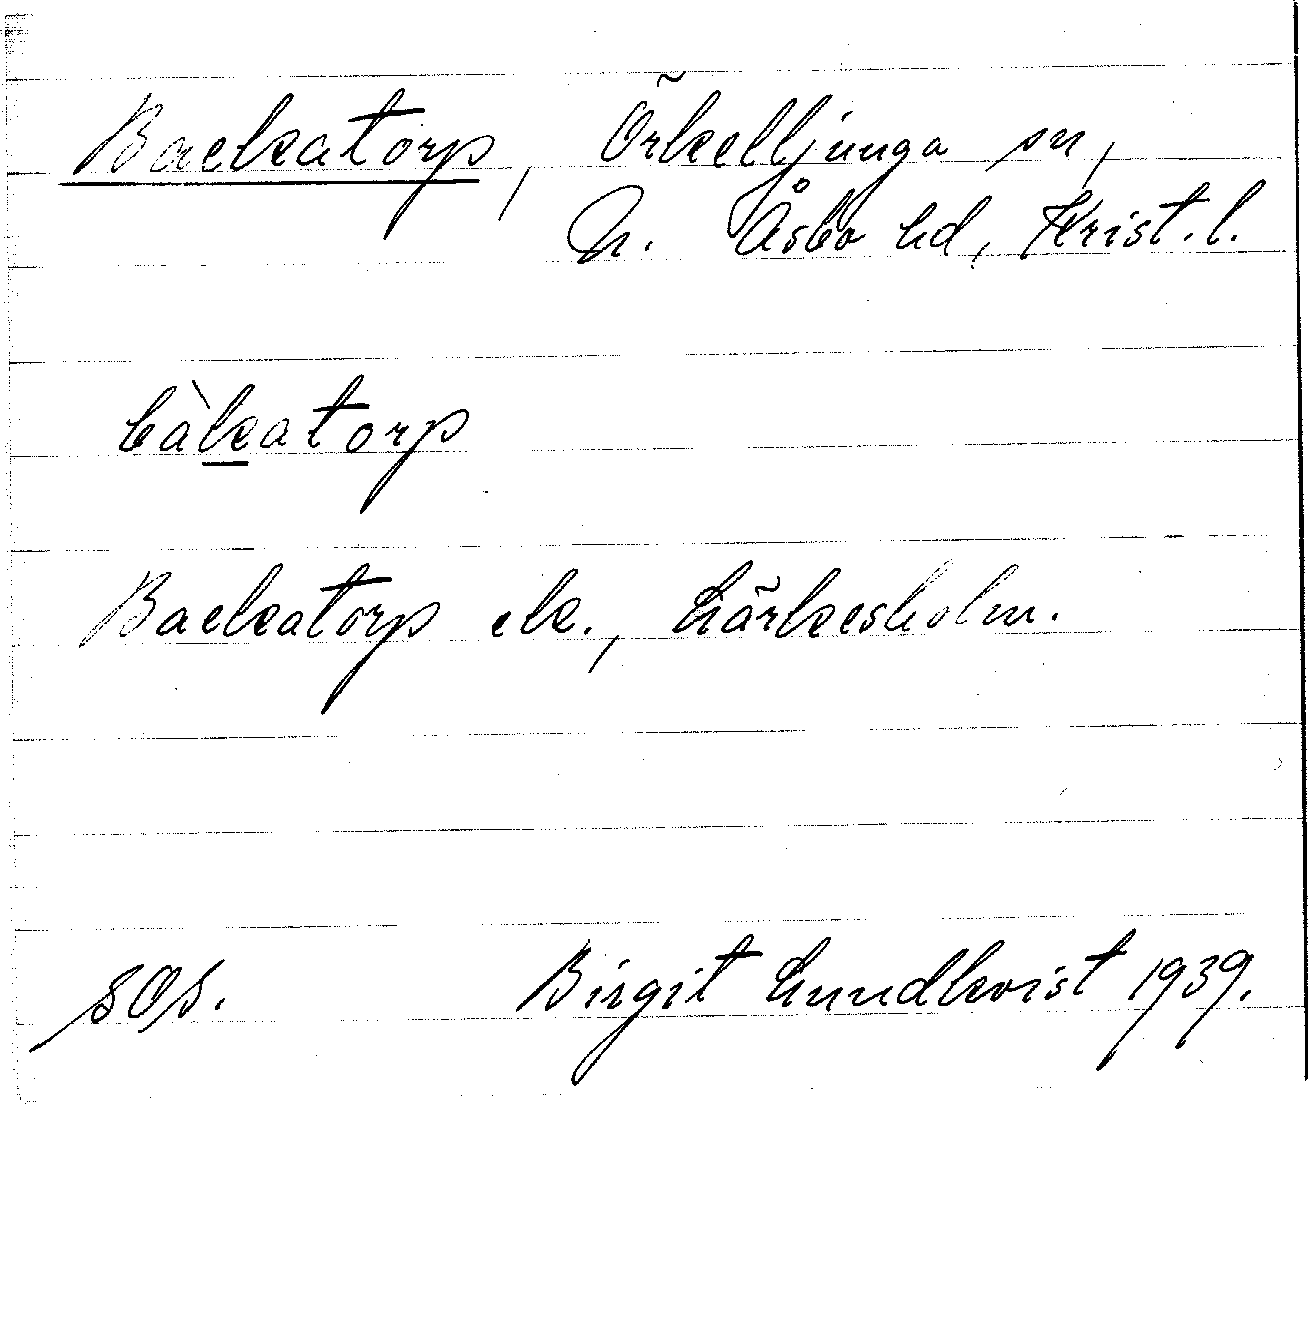 Backatorp, Örkelljunga sn,
N. Åsbo hd, Krist. l.
bàkatorp
Backatorp ek., Lärkesholm.
SOS. Birgit Lundkvist 1939.